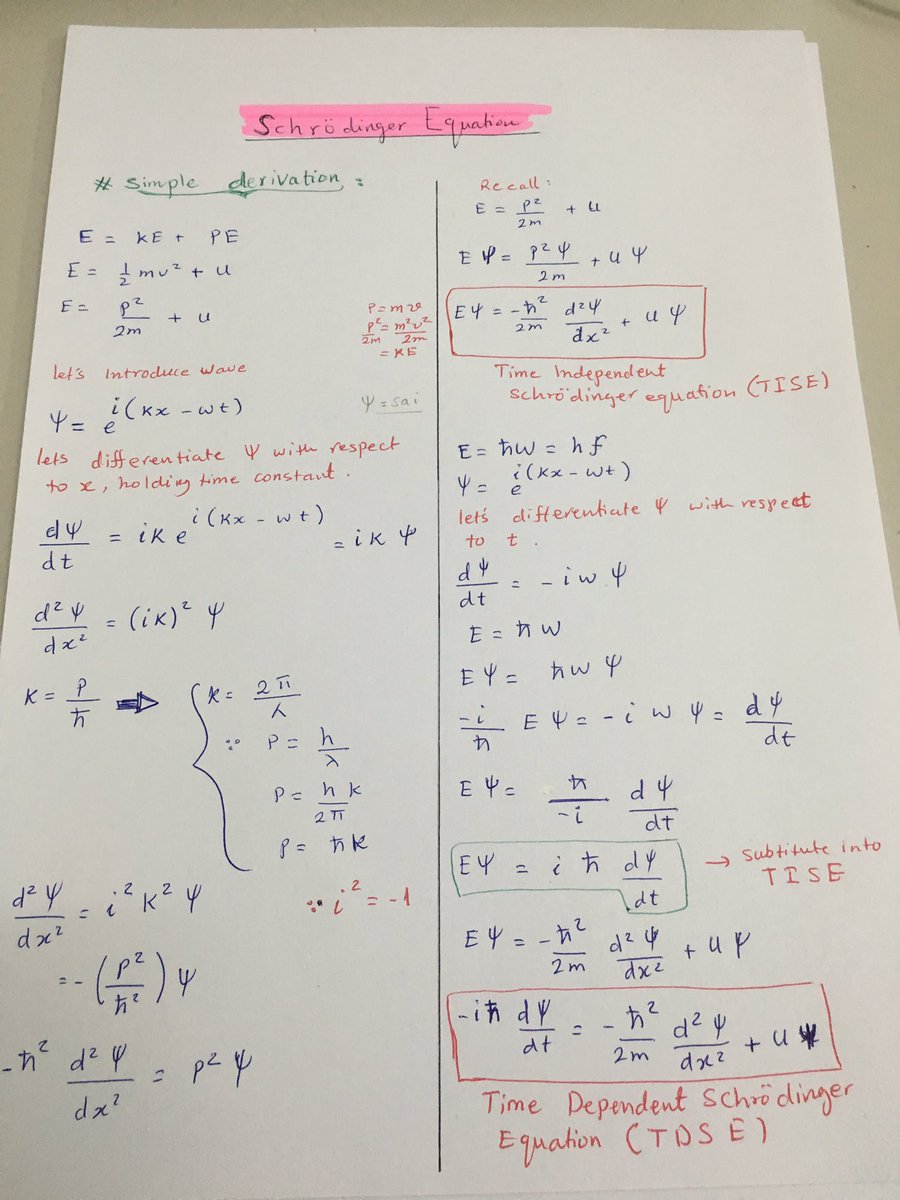 Schrödinger Equation
# Simple derivation :
E = KE + PE
E = 1/2 mv² + u
E = p²/2m + u
P = mv
p²/2m = m²v²/2m
= KE
let's introduce wave
Ψ = e^i(kx - wt)
Ψ = sai
lets differentiate Ψ with respect
to x, holding time constant.
dΨ/dt = ik e^i(kx - wt) = ik Ψ
d²Ψ/dx² = (ik)² Ψ
k = p/ħ ⇒ { k = 2π/λ
∵ P = h/λ
P = h/2π k
p = ħk
d²Ψ/dx² = i² k² Ψ ∵ i² = -1
= -(p²/ħ²) Ψ
-ħ² d²Ψ/dx² = p² Ψ
Recall:
E = p²/2m + u
EΨ = p²Ψ/2m + uΨ
EΨ = -ħ²/2m d²Ψ/dx² + uΨ
Time Independent
Schrödinger equation (TISE)
E = ħw = hf
Ψ = e^i(kx - wt)
let's differentiate Ψ with respect
to t.
dΨ/dt = -iwΨ
E = ħw
EΨ = ħwΨ
-i/ħ EΨ = -iwΨ = dΨ/dt
EΨ = ħ/-i dΨ/dt
EΨ = iħ dΨ/dt → Subtitute into
TISE
EΨ = -ħ²/2m d²Ψ/dx² + uΨ
-iħ dΨ/dt = -ħ²/2m d²Ψ/dx² + uΨ
Time Dependent Schrödinger
Equation (TDSE)